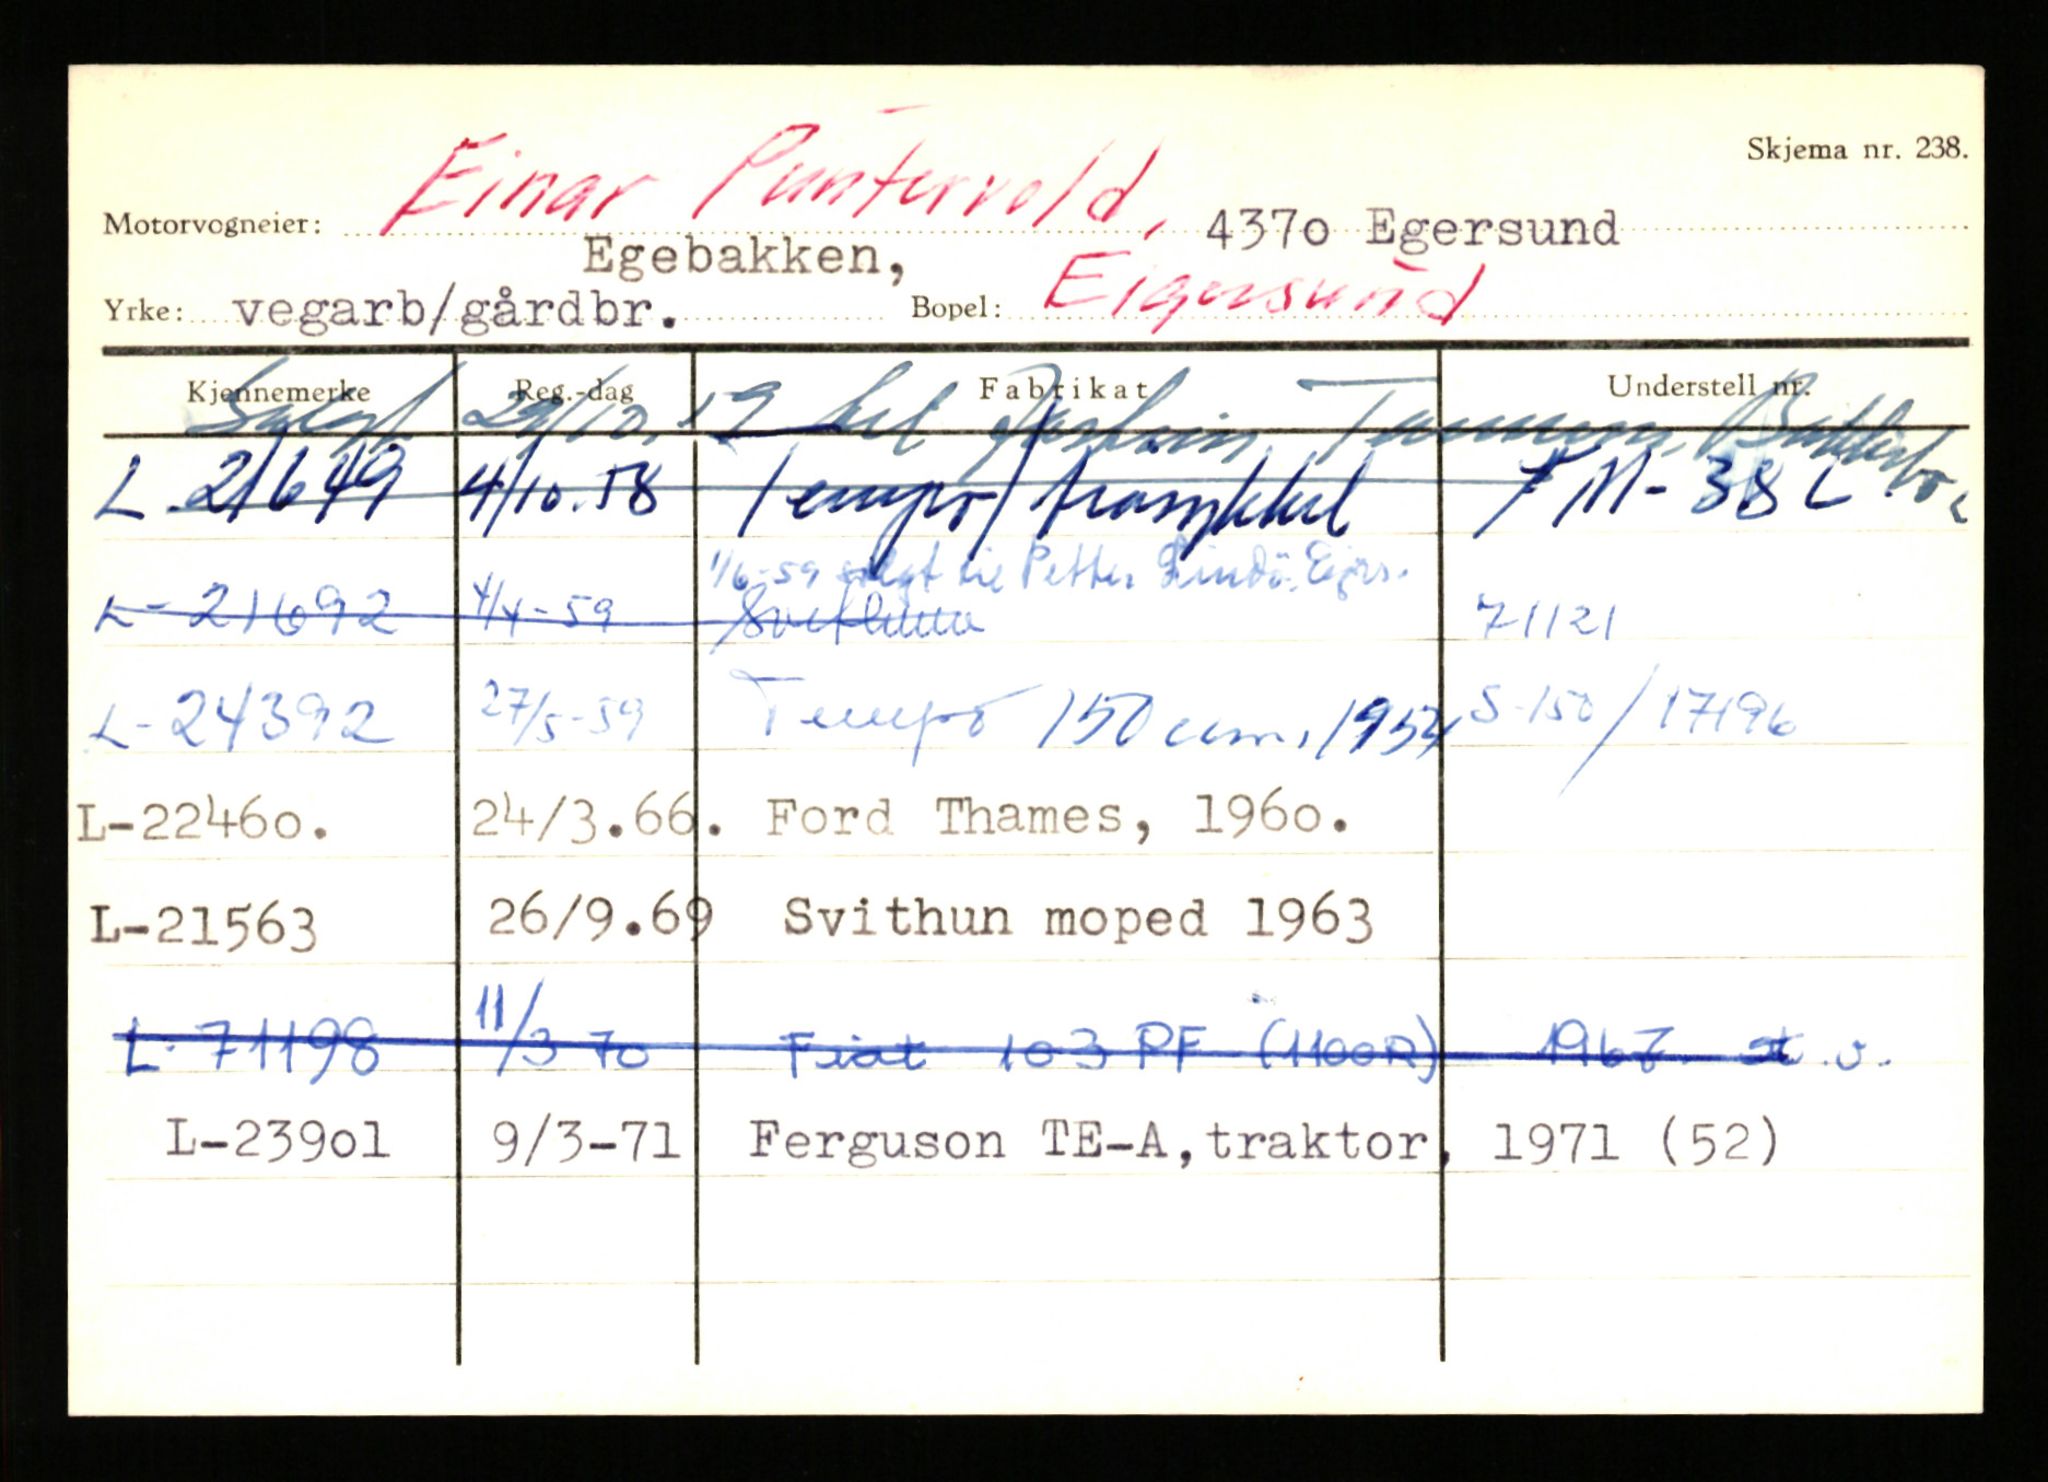 Skjema nr. 238.
Motorvogneier: Einar Puntervold, 4370 Egersund
Egebakken,
Yrke: vegarb/gårdbr. Bopel: Eigersund
Kjennemerke Reg.-dag Fabrikat Understell nr.
Solgt 29/10.59 til Tammes
L 21649 4/10.58 Tempo/trasykkel 7M-38L
1/6-59 solgt til Petter Eigers.
L-21692 4/4-59 71121
L-24392 27/5-59 Tempo 150 ccm. 1954 S-150/17196
L-22460. 24/3.66. Ford Thames, 1960.
L-21563 26/9.69 Svithun moped 1963
L-71198 11/3 70 Fiat 103 PF (1100R) 1967 st.v.
L-23901 9/3-71 Ferguson TE-A, traktor, 1971 (52)